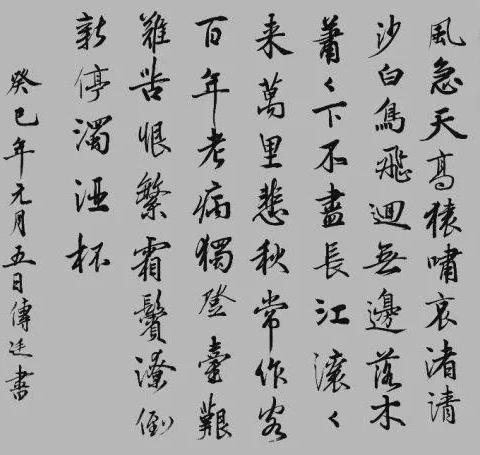 風急天高猿嘯哀渚清
沙白鳥飛迴無邊落木
蕭々下不盡長江滾々
来萬里悲秋常作客
百年老病獨登臺艱
難苦恨繁霜鬢潦倒
新停濁酒杯
癸巳年元月五日傳廷書